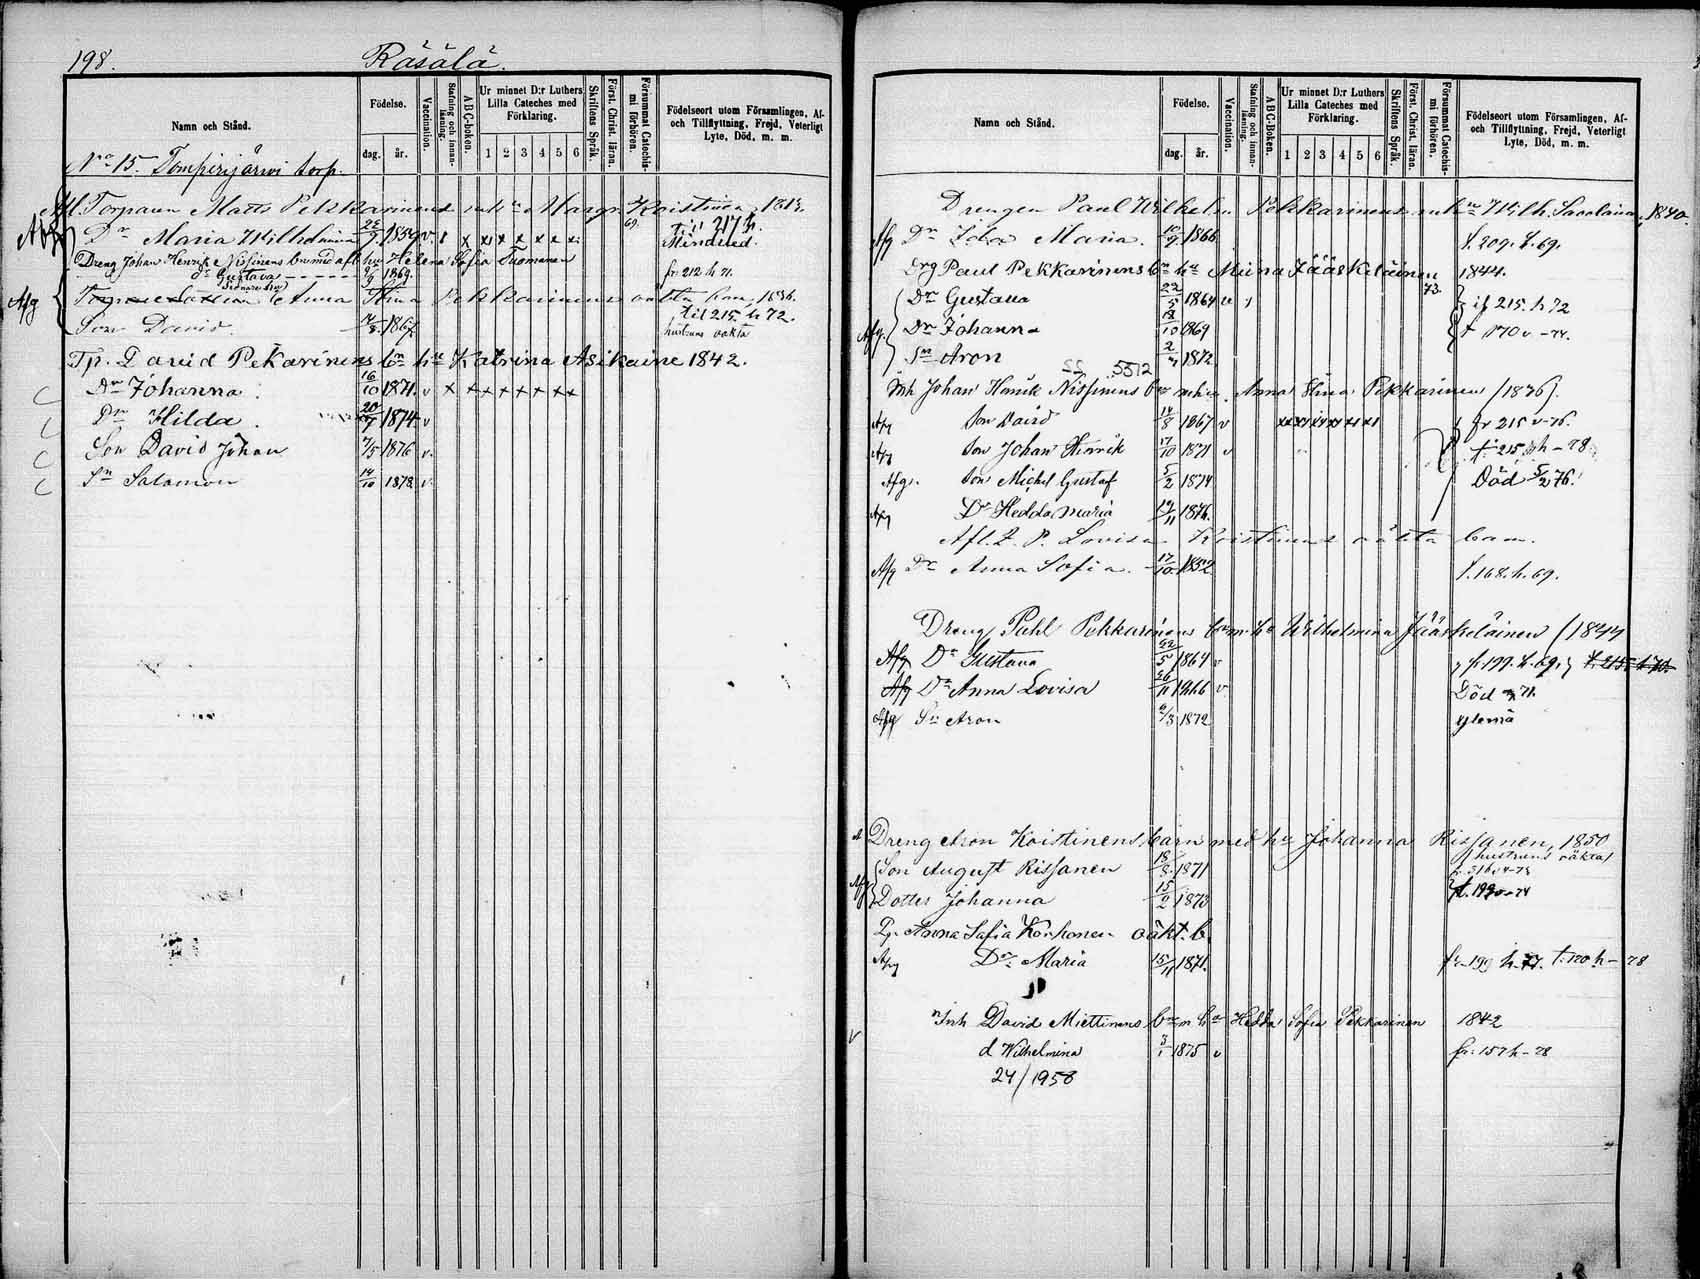 198. Räsälä.
Namn och Stånd.
Födelse.
dag. år.
Vaccination.
Stafning och innan-läsning.
A B C-boken.
Ur minnet D:r Luthers Lilla Cateches med Förklaring.
1 2 3 4 5 6
Skriftens Språk.
Först. Christ. läran.
Försummat Catechis-mi förhören.
Födelseort utom Församlingen, Af- och Tillflyttning, Frejd, Veterligt Lyte, Död, m. m.
No 15. Tompirijärwi torp.
Afl. Torparen Matts Pekkarinens Margr. Koistinen, 1813.
Dr Maria Wilhelmina 22/9 1859 v. 69. till 217 h. Mindred.
Dreng Johan Henrik Nissinens brn med afl hu Helena Sofia Tuomanen
dr Gustava 1869. fr. 212 h 71.
Anna Stina Pekkarinens oäkta barn, 1836. til 215. h 72.
Son David 14/8 1867. hustruns oäkta
Tp. David Pekarinens bn hu Katrina Asikaine 1842.
Dr Johanna 16/10 1871. v x x x x x x x x
Dr Hilda. 20/7 1874 v
Son David Johan 7/5 1876 v.
Sn Salamon 14/10 1878 v
Namn och Stånd.
Födelse.
dag. år.
Vaccination.
Stafning och innan-läsning.
A B C-Boken.
Ur minnet D:r Luthers Lilla Cateches med Förklaring.
1 2 3 4 5 6
Skriftens Språk.
Först. Christ. läran.
Försummat Catechis-mi förhören.
Födelseort utom Församlingen, Af- och Tillflyttning, Frejd, Veterligt Lyte, Död, m. m.
Drengen Paul Wilhelm Pekkarinens m hu Wilh. Savolainen, 1840.
Afg Dr Ida Maria. 10/9 1866 f. 209. h. 69.
Drg Paul Pekkarinens bn hu Miina Jääskeläinen 1844.
Dr Gustava 22/5 1864 v 73. if 215. h 72
Afg. Dr Johanna 18/10 1869 t 170 v -74.
Sn Aron 2/3 1872
SS 5512
Inh Johan Henrik Nissinens bn m hu. Anna Stina Pekkarinen (1836).
Afg Son David 14/8 1867 v fr 215 v-76.
Afg Son Johan Hinrik 17/10 1871 v t. 215 h - 78
Afg. Son Michel Gustaf 5/2 1874 Död 5/2 76.
Afg Dr Hedda Maria 14/11 1876.
Afl. P. Lovisa Koistinens oäkta barn.
Afg Dr Anna Sofia. 17/10 1852 f. 168. h. 69.
Dreng Pahl Pekkarinens barn m hu Wilhelmina Jääskeläinen (1844
Afg Dr Gustava 22/5 1864 v fr. 199. h. 69. t. 215 h 70.
Afg Dr Anna Lovisa 26/11 1866 v Död 71.
Afg Sn Aron 2/3 1872
Dreng Aron Koistinens barn med hu Johanna Rissanen, 1850
Son August Rissanen 18/8 1871 (hustruns oäkta)
Afg Dotter Johanna 15/2 1873 t. 199 v-74
Pg. Anna Safia Korhonen oäkt. b.
Afg Dr Maria 15/11 1871. fr. 199 h. 77. t. 170 h - 78
Inh David Miettinens bn m hu Hedda Sofia Pekkarinen 1842
v d Wilhelmina 3/1 1875 v fr. 157 h - 78
24/1958